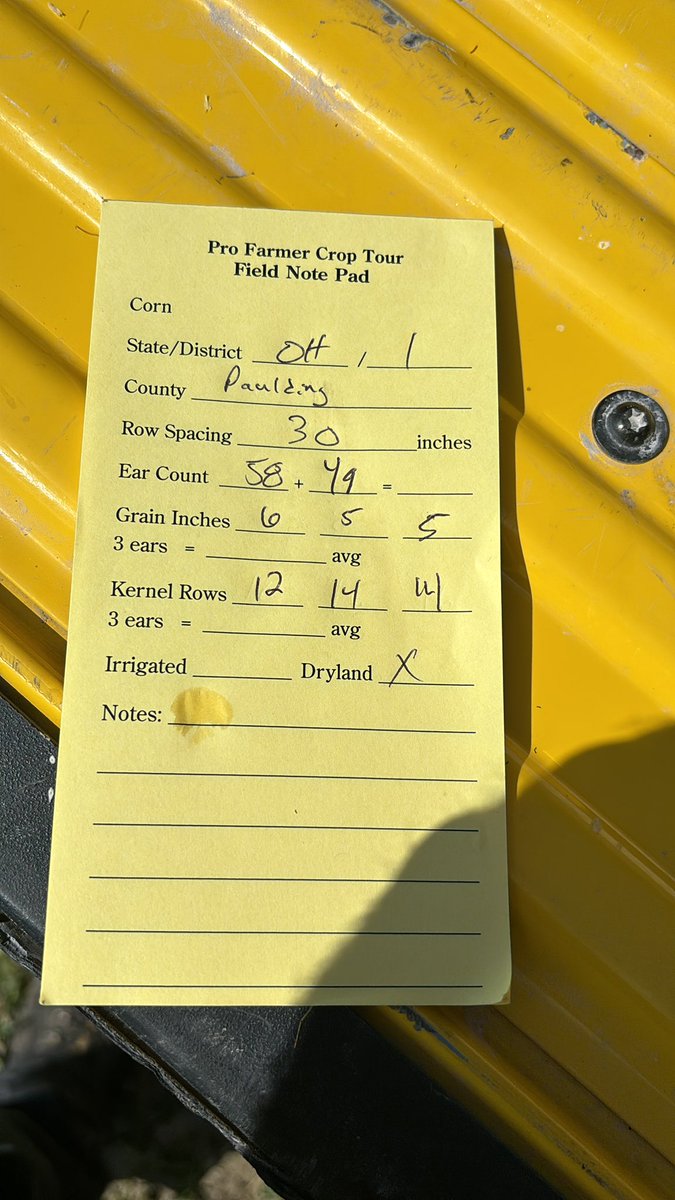 Pro Farmer Crop Tour
Field Note Pad
Corn
State/District OH / 1
County Paulding
Row Spacing 30 inches
Ear Count 58 + 49 =
Grain Inches 6 5 5
3 ears = avg
Kernel Rows 12 14 14
3 ears = avg
Irrigated Dryland X
Notes: